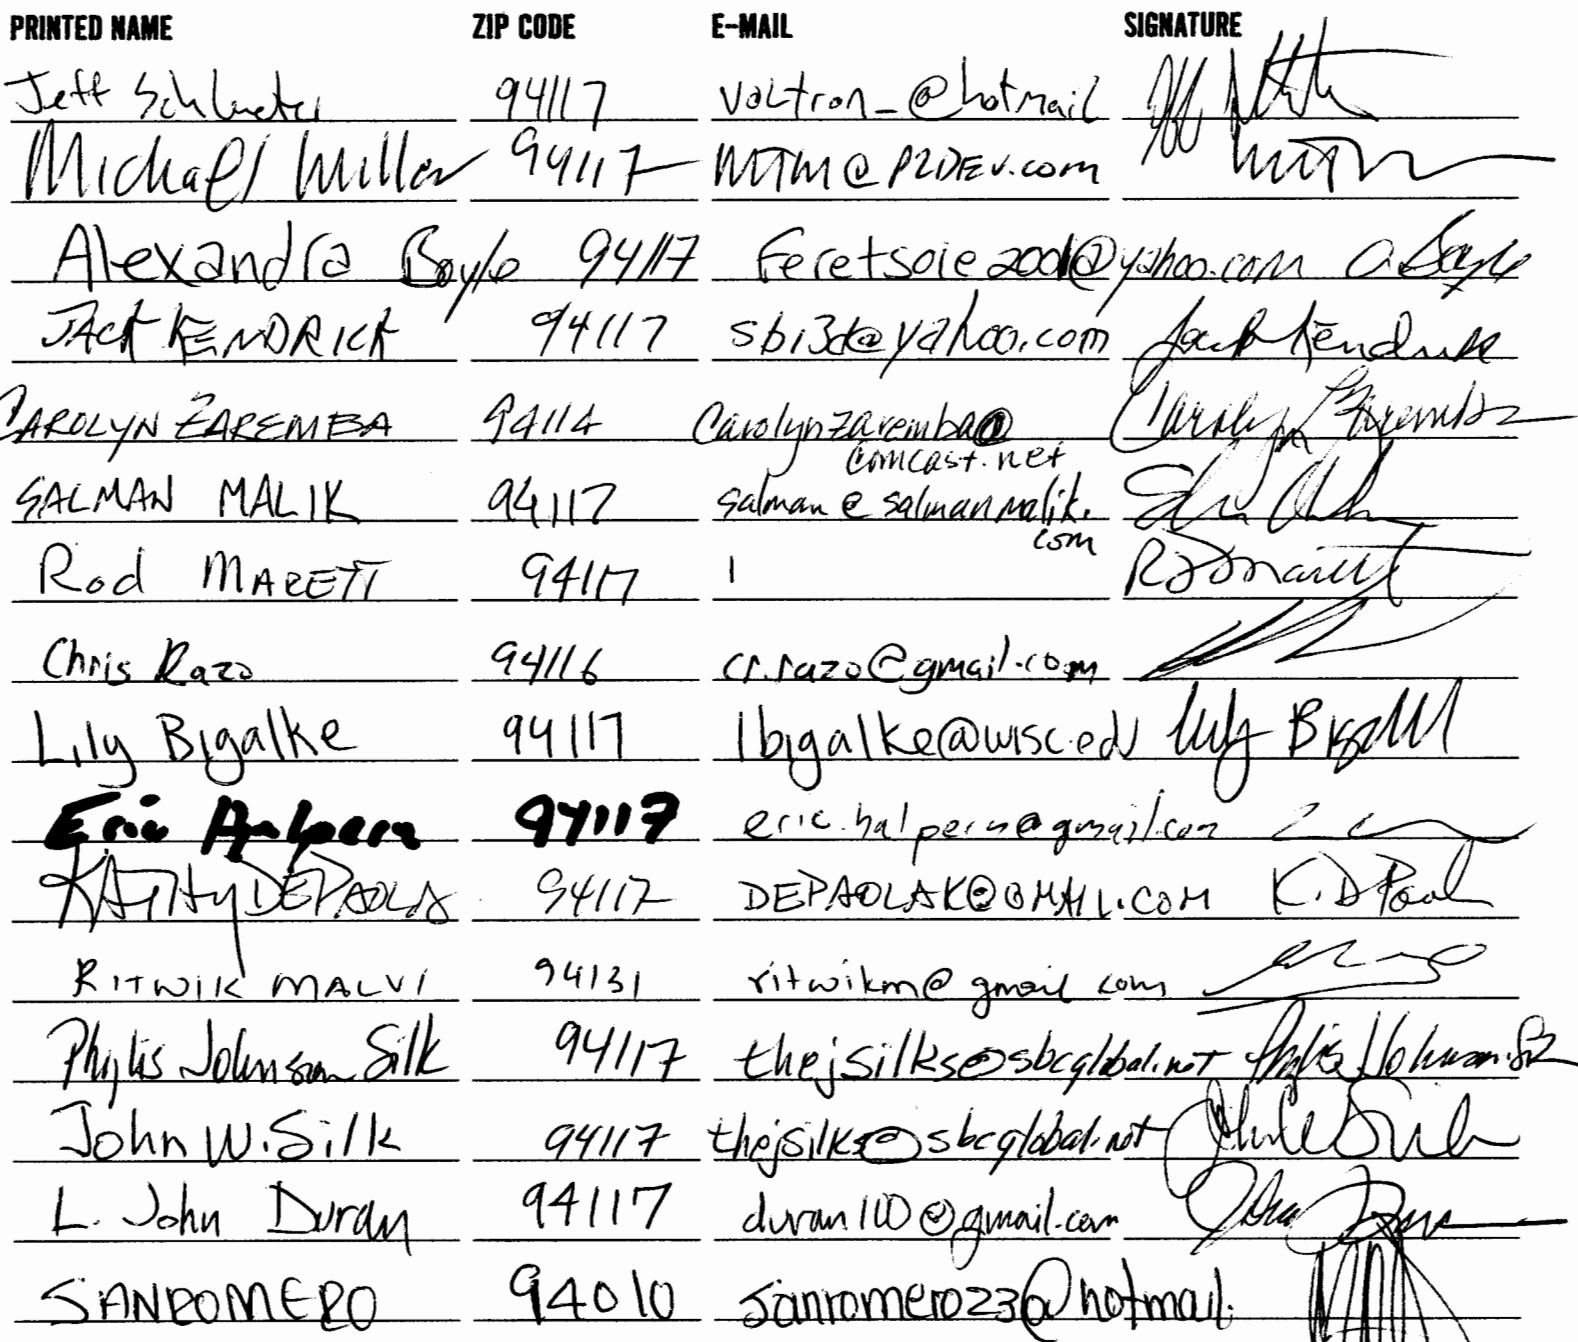 PRINTED NAME ZIP CODE E-MAIL SIGNATURE
Jeff Schlueter 94117 voltron_@hotmail
Michael Miller 94117 MTM@P2DEV.com
Alexandra Boyle 94117 feretsoie2001@yahoo.com A Boyle
JACK KENDRICK 94117 sbi3d@yahoo.com Jack Kendrick
CAROLYN ZAREMBA 94114 Carolynzaremba@ Carolyn Zaremba
comcast.net
SALMAN MALIK 94117 salman@salmanmalik.
com
Rod MARETT 94117 Rod Marett
Chris Razo 94116 cr.razo@gmail.com
Lily Bigalke 94117 lbigalke@wisc.edu Lily Bigalke
Eric Halpern 94117 eric.halpern@gmail.com
KATHY DEPAOLA 94117 DEPAOLAK@GMAIL.COM K. DPaola
RITWIK MALVI 94131 ritwikm@gmail com
Phyllis Johnson Silk 94117 thejsilks@sbcglobal.net Phyllis Johnson Silk
John W. Silk 94117 thejsilks@sbcglobal.net John W Silk
L. John Duran 94117 duran100@gmail.com John Duran
SANROMERO 94010 sanromero23@hotmail.